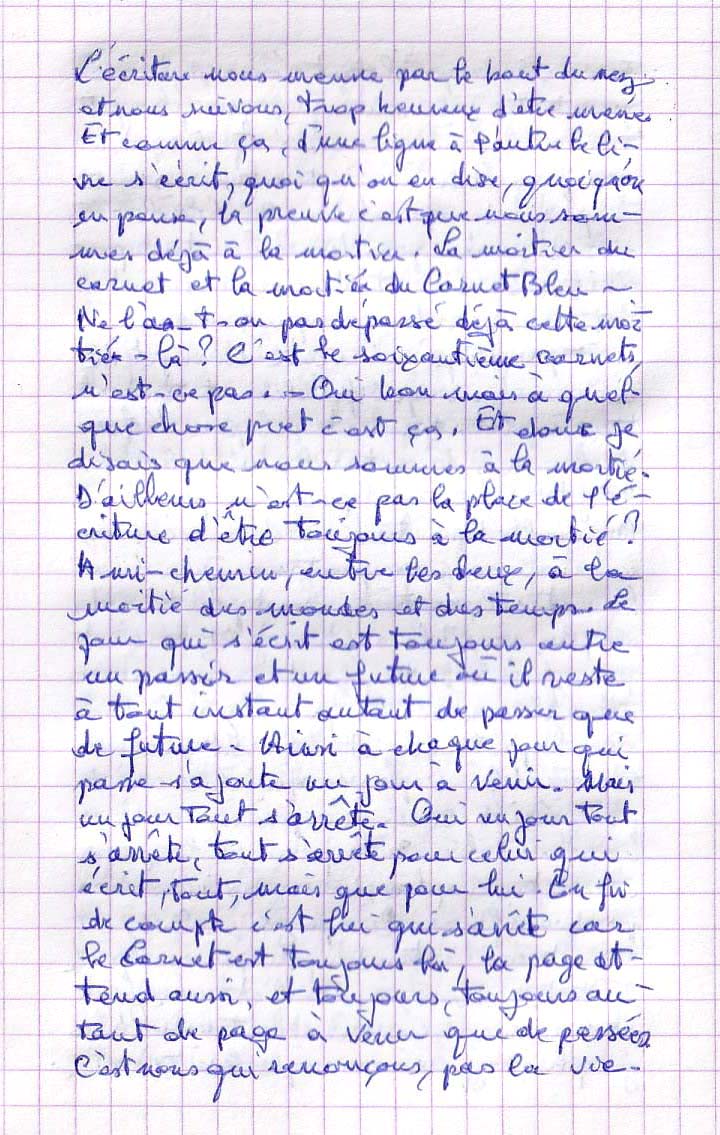 L'écriture nous mène par le bout du nez
et nous suivons, trop heureux d'être menés
Et comme ça, d'une ligne à l'autre le li-
vre s'écrit, quoi qu'on en dise, quoiqu'on
en pense, la preuve c'est que nous som-
mes déjà à la moitié. La moitié du
carnet et la moitié du Carnet Bleu -
Ne l'a-t-on pas dépassé déjà cette moi
tié-là ? C'est le soixantième carnets,
n'est-ce pas. - Oui bon mais à quel-
que chose près c'est ça. Et donc je
disais que nous sommes à la moitié.
D'ailleurs n'est-ce pas la place de l'é-
criture d'être toujours à la moitié ?
A mi-chemin, entre les deux, à la
moitié des mondes et des temps. Le
jour qui s'écrit est toujours entre
un passés et un future où il reste
à tout instant autant de passer que
de future - Ainsi à chaque jour qui
passe s'ajoute un jour à venir. Mais
un jour tout s'arrête. Oui un jour tout
s'arrête, tout s'arrête pour celui qui
écrit, tout, mais que pour lui. En fin
de compte c'est lui qui s'arrête car
le Carnet est toujours là, la page at-
tend aussi, et toujours, toujours au-
tant de page à venir que de passées
C'est nous qui renonçons, pas la vie.